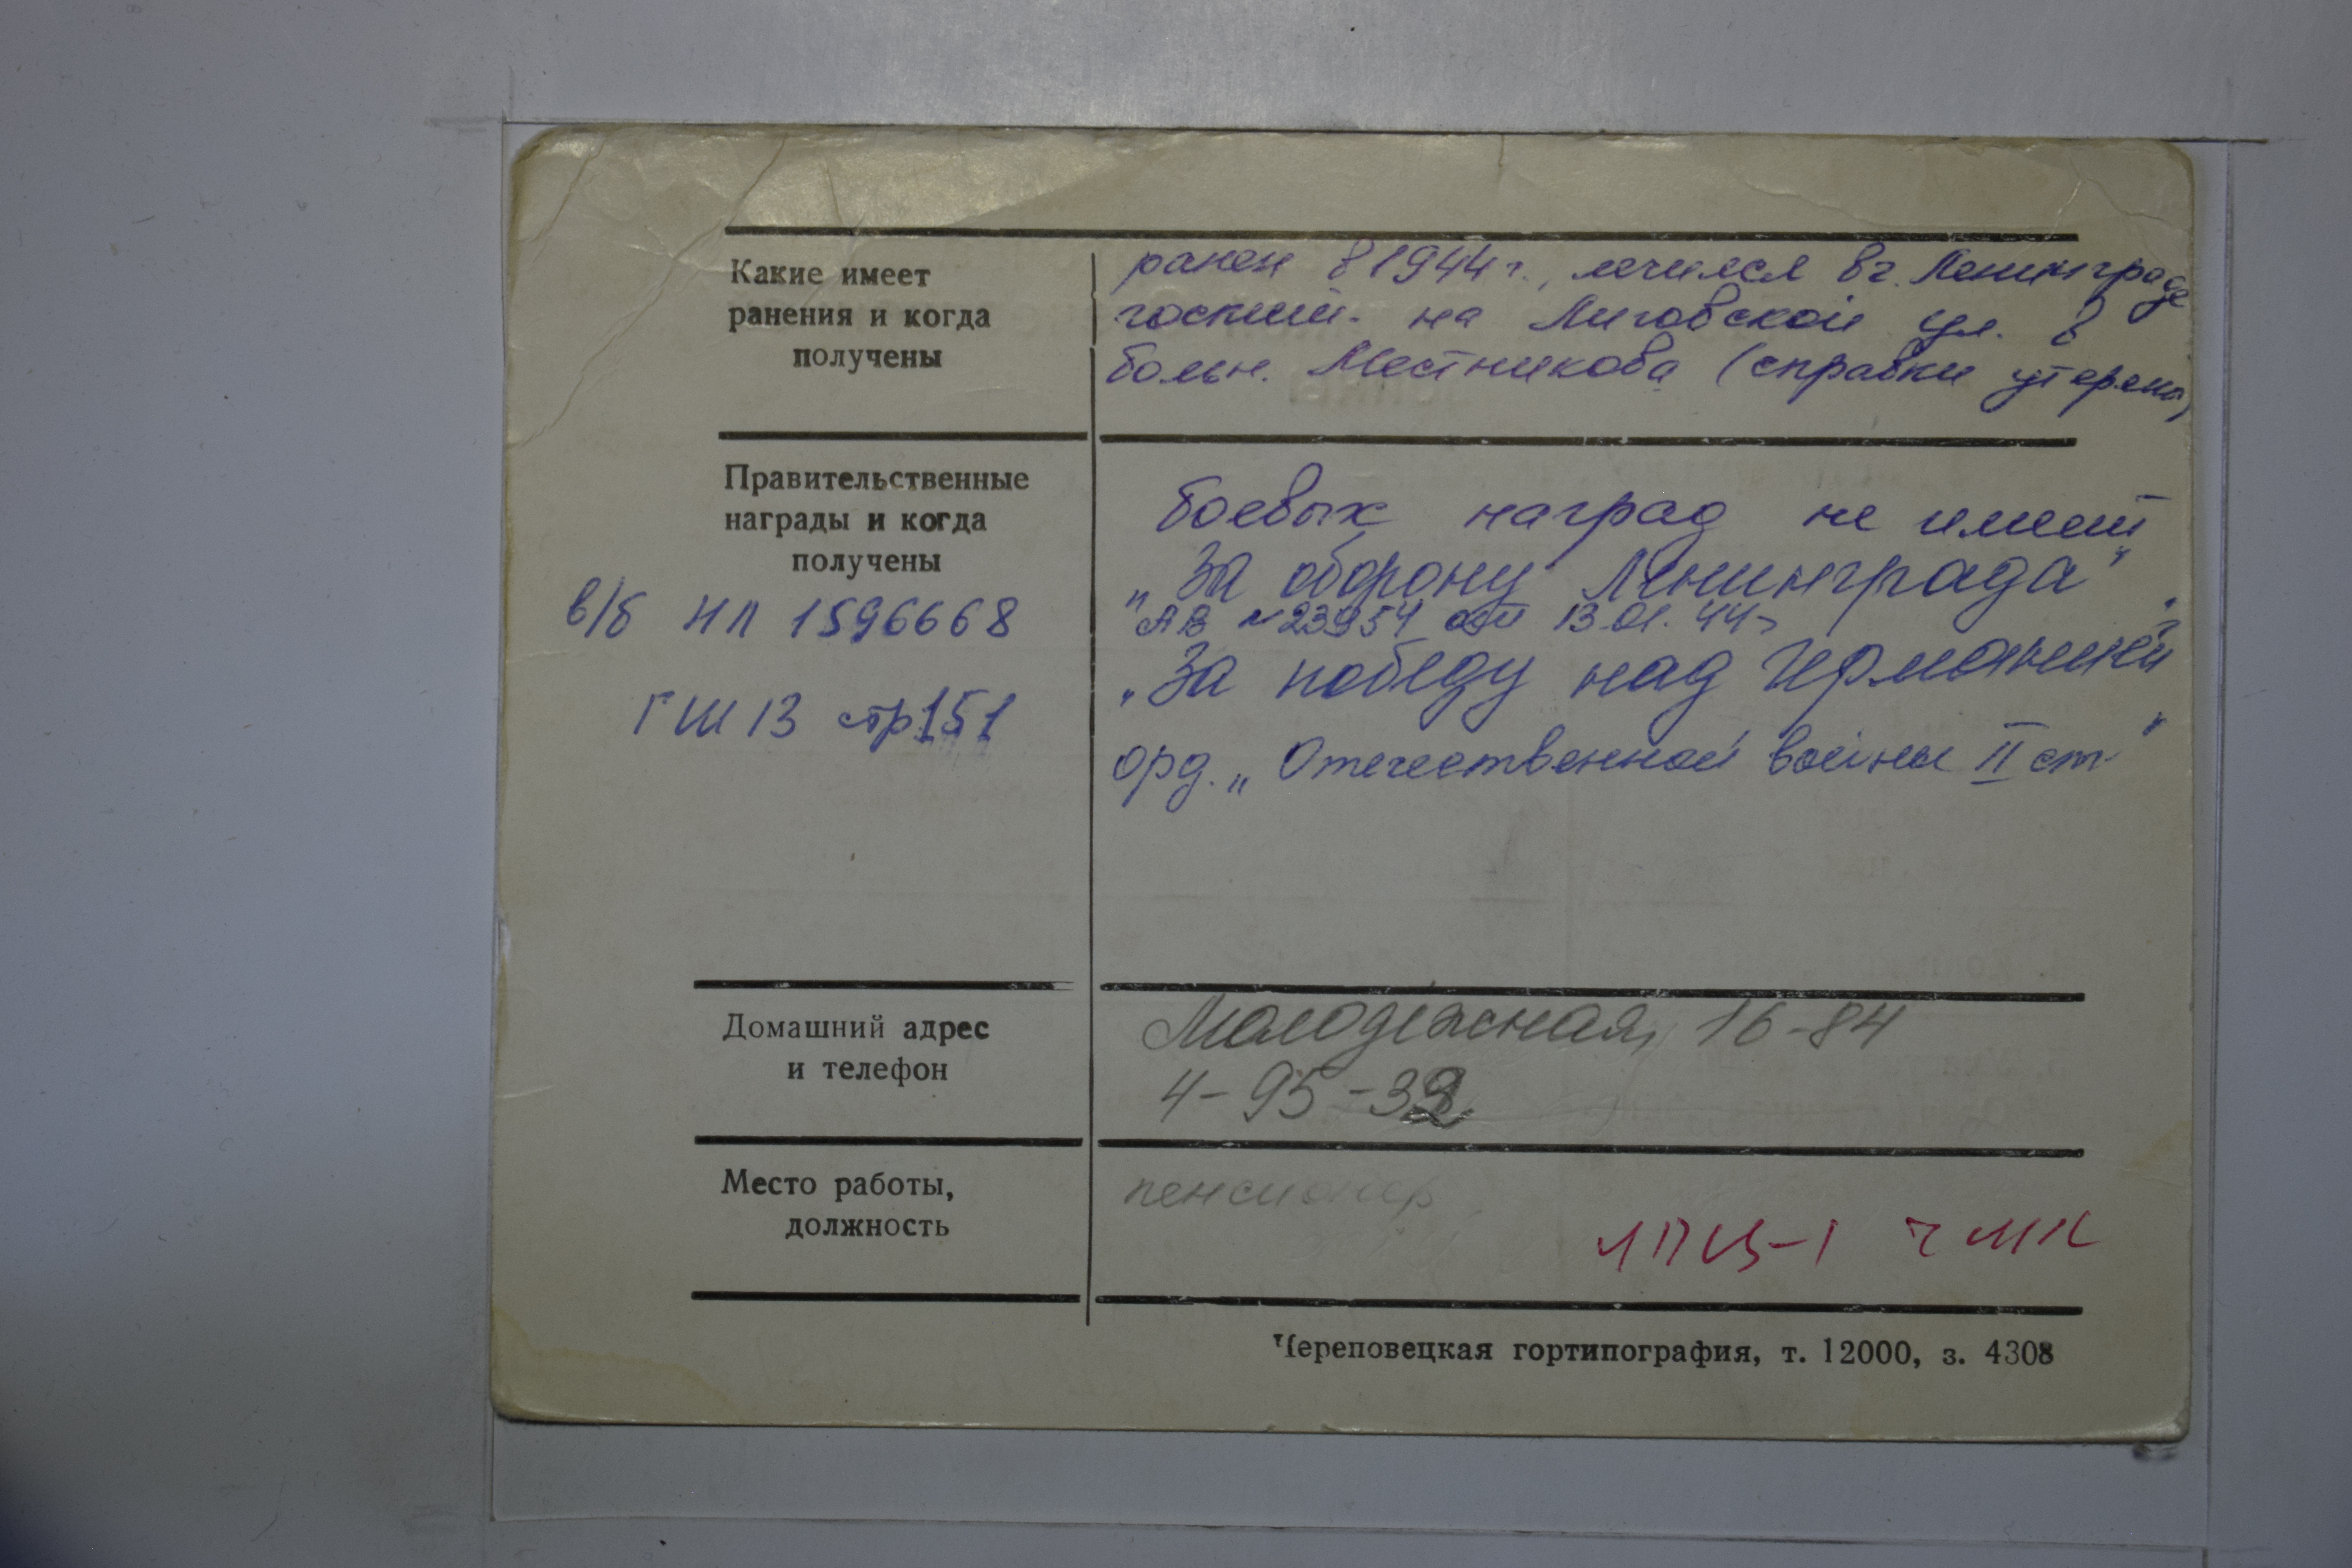 Какие имеет
ранения и когда
получены
ранен в 1944 г., лечился в г. Ленинграде
госпит. на Лиговской ул. в
больн. Местникова (справки утеряны)
Правительственные
награды и когда
получены
в/б НЛ 1596668
ГШ 13 стр 151
боевых наград не имеет
„За оборону Ленинграда"
АВ № 23954 от 13.01.44г
„За победу над Германией"
орд. „Отечественной войны II ст"
Домашний адрес
и телефон
Молодёжная, 16-84
4-95-32
Место работы,
должность
пенсионер
ЛПЦ-1 ЧМК
Череповецкая гортипография, т. 12000, з. 4308